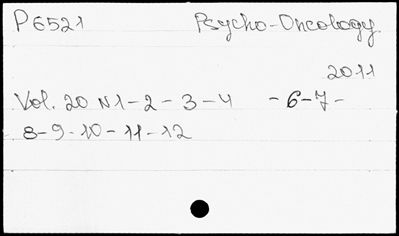 P 6521 Psycho-Oncology
2011
Vol. 20 N1-2-3-4 -6-7-
8-9-10-11-12